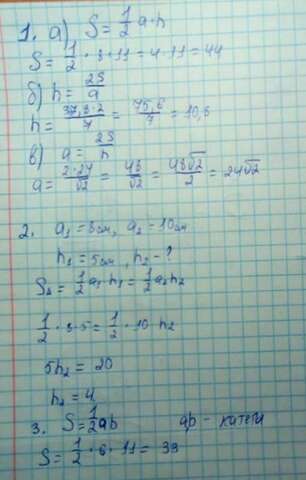 1. а) S = 1/2 a·h
S = 1/2 · 8·11 = 4·11 = 44
б) h = 2S/a
h = 37,8·2/7 = 75,6/7 = 10,8
в) a = 2S/h
a = 2·24/√2 = 48/√2 = 48√2/2 = 24√2
2. a₁ = 8см, a₂ = 10см
h₁ = 5см, h₂ - ?
S₁ = 1/2 a₁·h₁ = 1/2 a₂h₂
1/2 · 8·5 = 1/2 · 10·h₂
5h₂ = 20
h₂ = 4
3. S = 1/2 ab ab - катеты
S = 1/2 · 6 · 11 = 33